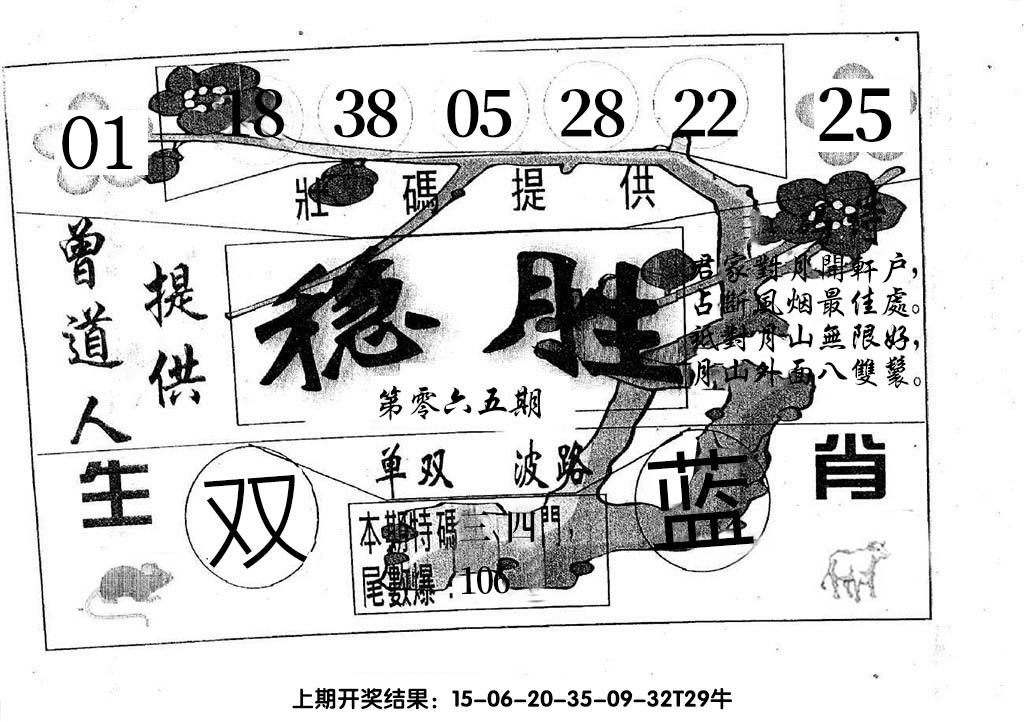 01 18 38 05 28 22 25
壯碼提供
特
曾道人
提供
稳胜
第零六五期
君家對月開軒户,
占斷風烟最佳處。
祗對月山無限好,
月山外面八雙鬟。
单双 波路
生肖
双
蓝
本期特碼三、四門,
尾數爆:106
上期开奖结果:15-06-20-35-09-32T29牛